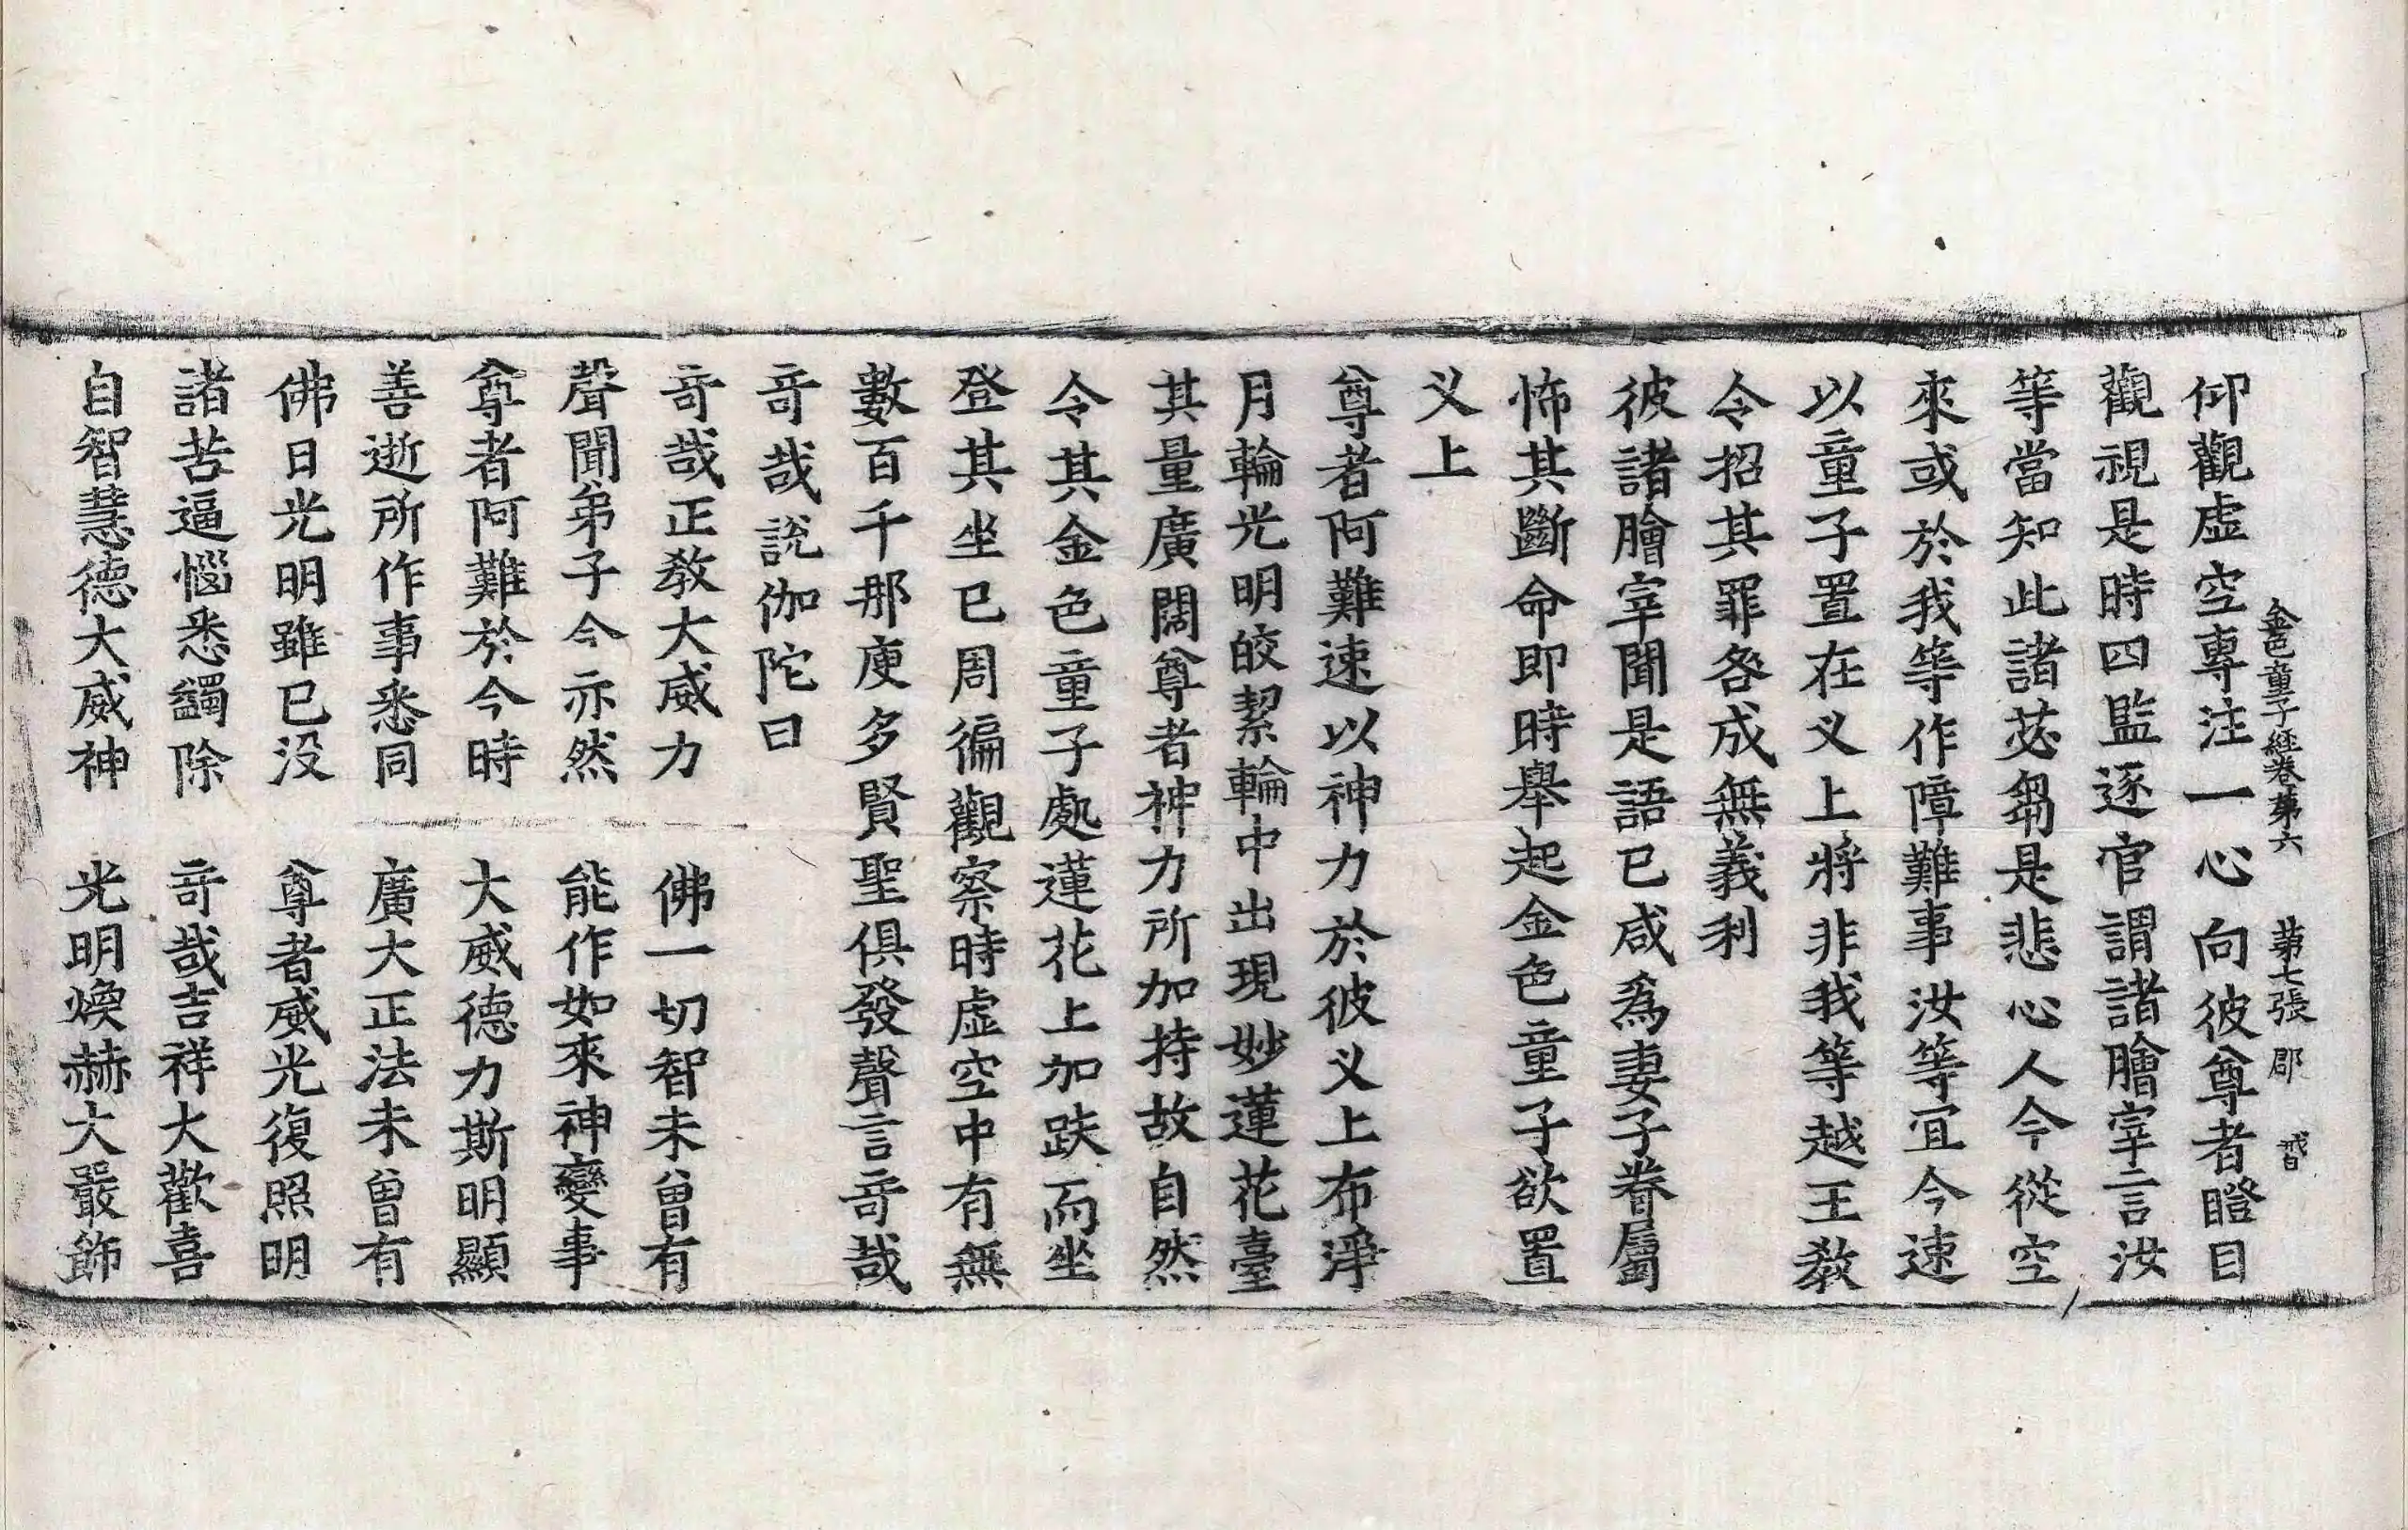 金色童子經卷第六 第七張 郡
仰觀虛空專注一心向彼尊者瞪目
觀視是時四監逐官謂諸膾宰言汝
等當知此諸苾芻是悲心人今從空
來或於我等作障難事汝等宜今速
以童子置在义上將非我等越王敎
令招其罪咎成無義利
彼諸膾宰聞是語已咸爲妻子眷屬
怖其斷命即時舉起金色童子欲置
义上
尊者阿難速以神力於彼义上布淨
月輪光明皎絜輪中出現妙蓮花臺
其量廣闊尊者神力所加持故自然
令其金色童子處蓮花上加趺而坐
登其坐已周徧觀察時虛空中有無
數百千那庾多賢聖俱發聲言竒哉
竒哉說伽陀曰
竒哉正敎大威力 佛一切智未曾有
聲聞弟子今亦然 能作如來神變事
尊者阿難於今時 大威德力斯明顯
善逝所作事悉同 廣大正法未曾有
佛日光明雖已没 尊者威光復照明
諸苦逼惱悉蠲除 竒哉吉祥大歡喜
自智慧德大威神 光明煥赫大嚴飾